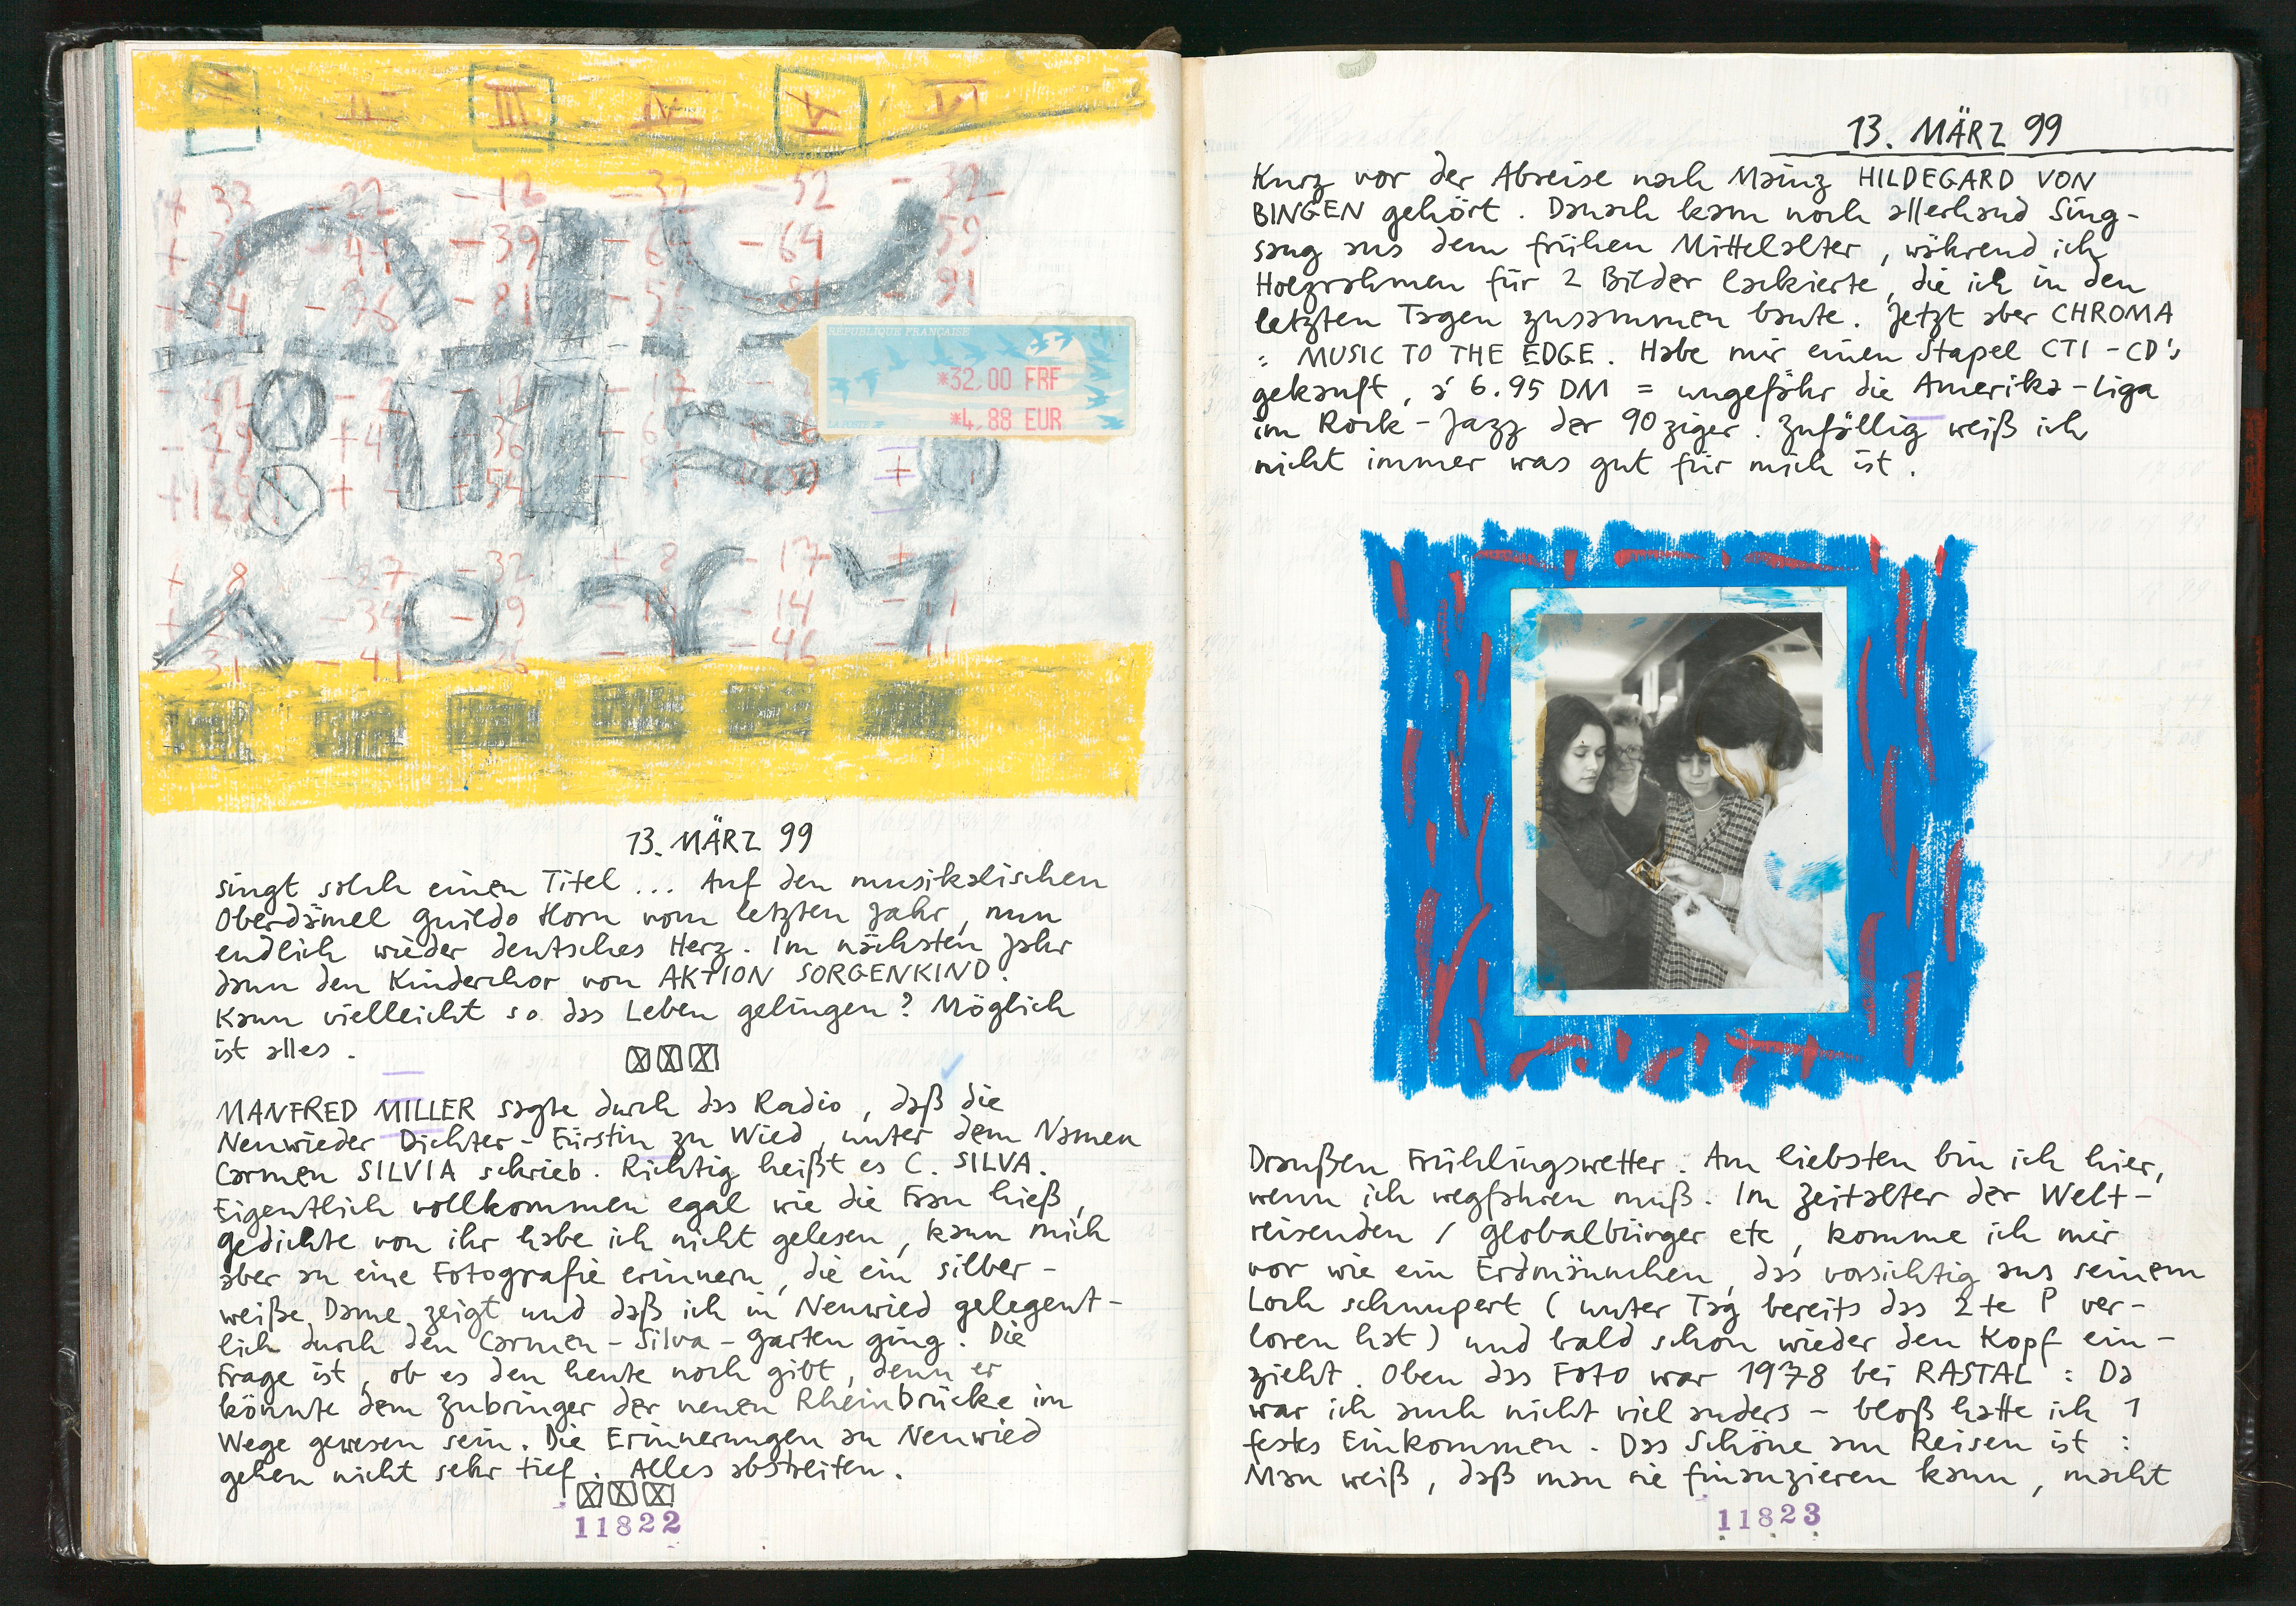 I II III IV V VI
+ 33 - 22 - 12 - 32 - 52 - 32
- 39 - 64 - 64 59
- 81 - 56 - 81 - 91
RÉPUBLIQUE FRANÇAISE
*32,00 FRF
*4,88 EUR
LA POSTE
- 42 - 2 - 12 - 17
- 79 + 4 - 36
+ 129 + - 54
+ 8 - 27 - 32 + 8 - 17 +
- 34 - 19 - 14
31 - 41 - 26 - 46 - 11
13. MÄRZ 99
singt solch einen Titel ... Auf den musikalischen
Oberdämel Guildo Horn vom letzten Jahr, nun
endlich wieder deutsches Herz. Im nächsten Jahr
dann den Kinderchor von AKTION SORGENKIND.
Kann vielleicht so das Leben gelingen? Möglich
ist alles.
MANFRED MILLER sagte durch das Radio, daß die
Neuwieder Dichter-Fürstin zu Wied, unter dem Namen
Carmen SILVIA schrieb. Richtig heißt es C. SILVA.
Eigentlich vollkommen egal wie die Frau hieß,
gedichte von ihr habe ich nicht gelesen, kann mich
aber an eine Fotografie erinnern, die ein silber-
weiße Dame zeigt und daß ich in Neuwied gelegent-
lich durch den Carmen-Silva-Garten ging. Die
Frage ist, ob es den heute noch gibt, denn er
könnte dem Zubringer der neuen Rheinbrücke im
Wege gewesen sein. Die Erinnerungen an Neuwied
gehen nicht sehr tief. Alles abstreiten.
11822
13. MÄRZ 99
Kurz vor der Abreise nach Mainz HILDEGARD VON
BINGEN gehört. Danach kam noch allerhand Sing-
sang aus dem frühen Mittelalter, während ich
Holzrahmen für 2 Bilder lackierte, die ich in den
letzten Tagen zusammen baute. Jetzt aber CHROMA
: MUSIC TO THE EDGE. Habe mir einen Stapel CTI-CD's
gekauft, á 6.95 DM = ungefähr die Amerika-Liga
im Rock-Jazz der 90ziger. Zufällig weiß ich
nicht immer was gut für mich ist.
Draußen Frühlingswetter. Am liebsten bin ich hier,
wenn ich wegfahren muß. Im Zeitalter der Welt-
reisenden / Globalbürger etc, komme ich mir
vor wie ein Erdmännchen, das vorsichtig aus seinem
Loch schnupert (unter Tag bereits das 2te P ver-
loren hat) und bald schon wieder den Kopf ein-
zieht. Oben das Foto war 1978 bei RASTAL: Da
war ich auch nicht viel anders - bloß hatte ich 1
festes Einkommen. Das Schöne am Reisen ist:
Man weiß, daß man sie finanzieren kann, macht
11823